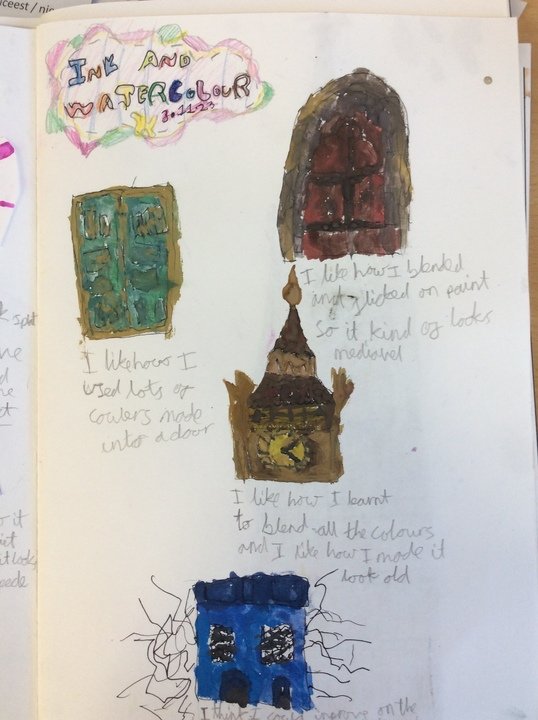 INK AND
WATERCOLOUR
3.11.23
I like how I blended
and flicked on paint
So it kind of looks
mediavel
I like how I
used lots of
coulers made
into a door
I like how I learnt
to blend all the colours
and I like how I made it
look old
I think I could improve on the
split
it